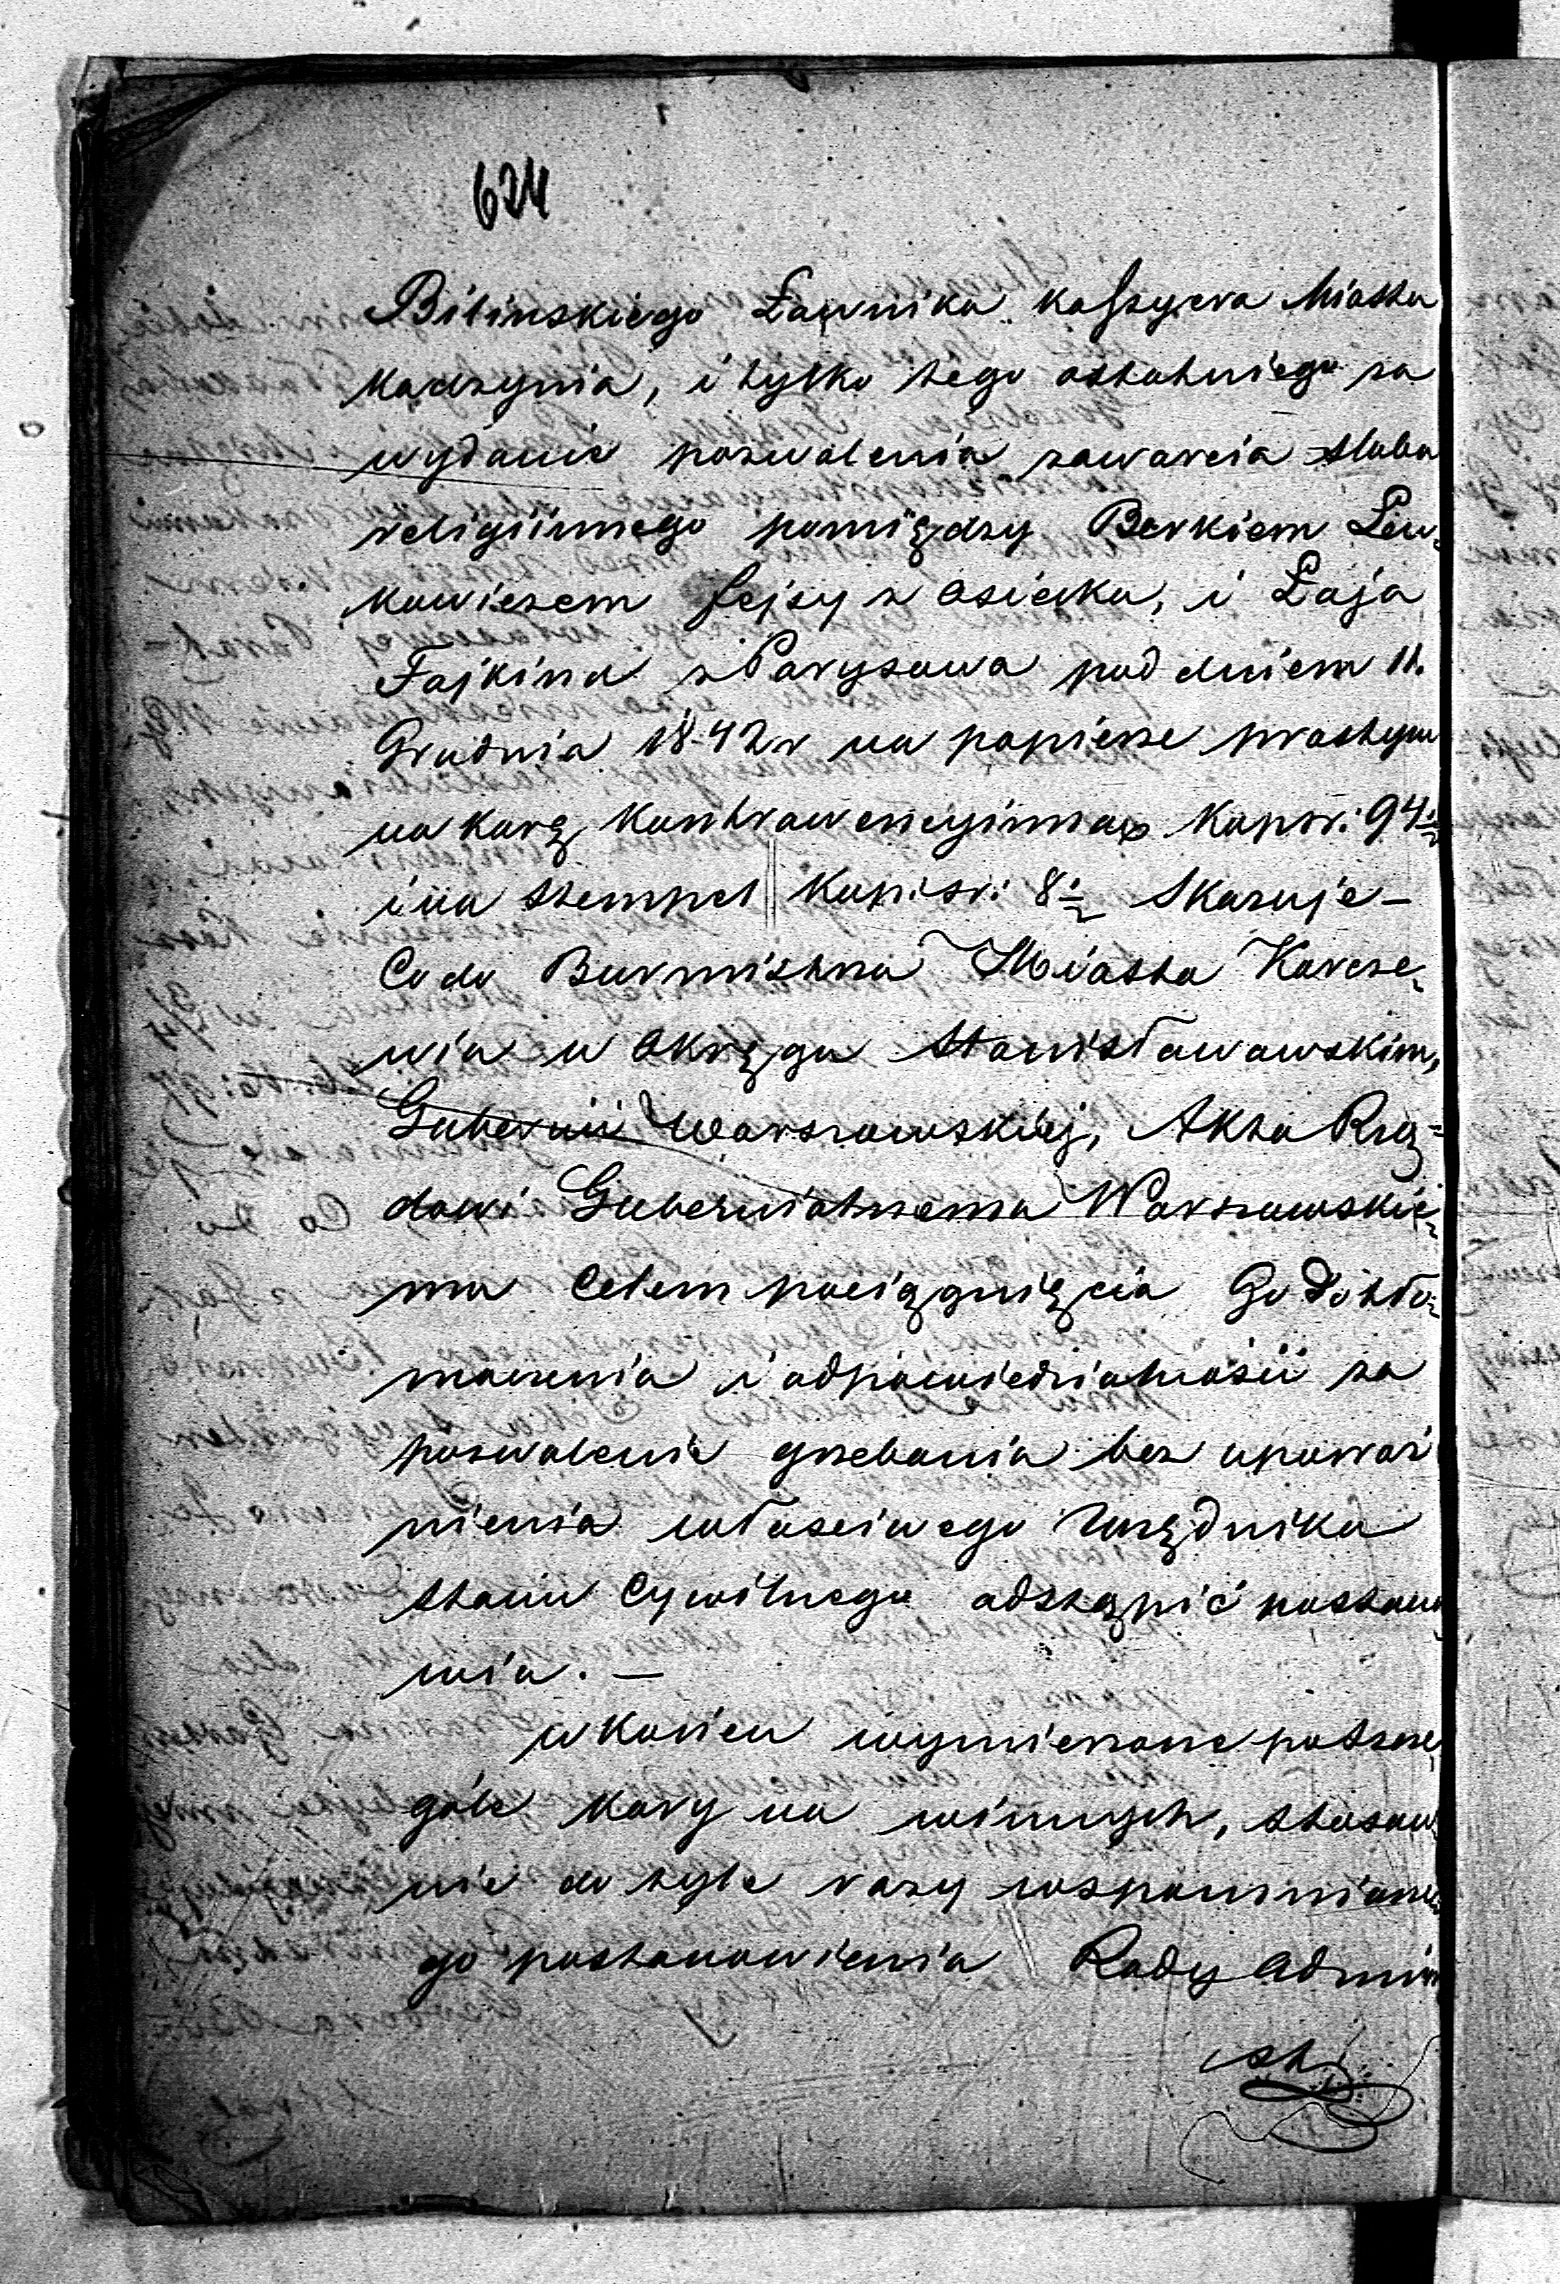 624
Bilinskiego Ławnika kassyera Miasta
Kadzynia, i tylko tego ostatniego za
wydanie pozwolenia zawarcia ślubu
religiinnego pomiędzy Berkiem Lew-
kowiczem Sejzy z Osiecka, i Łają
Fajkind z Parysowa pod dniem 11.
Grudnia 1842 r na papierze prostym
na karę kontrawencyinną Kop sr: 94½
i na Stempel Kop: sr: 8½ Skazuje –
Co do Burmistrza Miasta Karcze-
wia w Okręgu Stanisławowskim,
Gubernii Warszawskiej, Akta Rzą-
dowi Gubernialnemu Warszawskie-
mu Celem pociągnięcia Go do tło-
maczenia i odpowiedzialności za
pozwolenie grzebania bez upoważ
nienia właściwego Urzędnika
Stanu Cywilnego odstąpić postano
wia. —
w Końcu wymierzone poszcze
góle Kary na winnych, stosow
nie do tyle razy wspomniane
go postanowienia Rady Admini
st